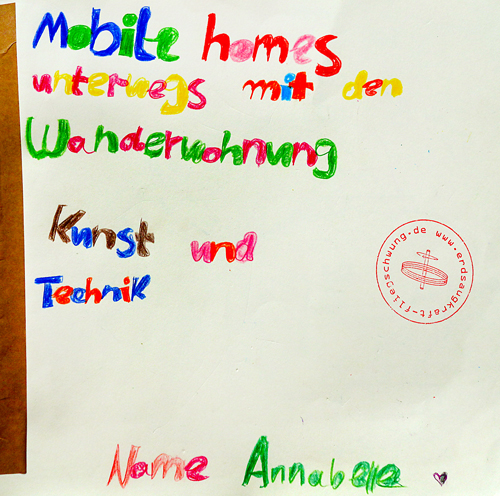 Mobile homes
unterwegs mit den
Wanderwohnung
Kunst und
Technik
www.erdsaugkraft-fliegschwung.de
Name Annabelle